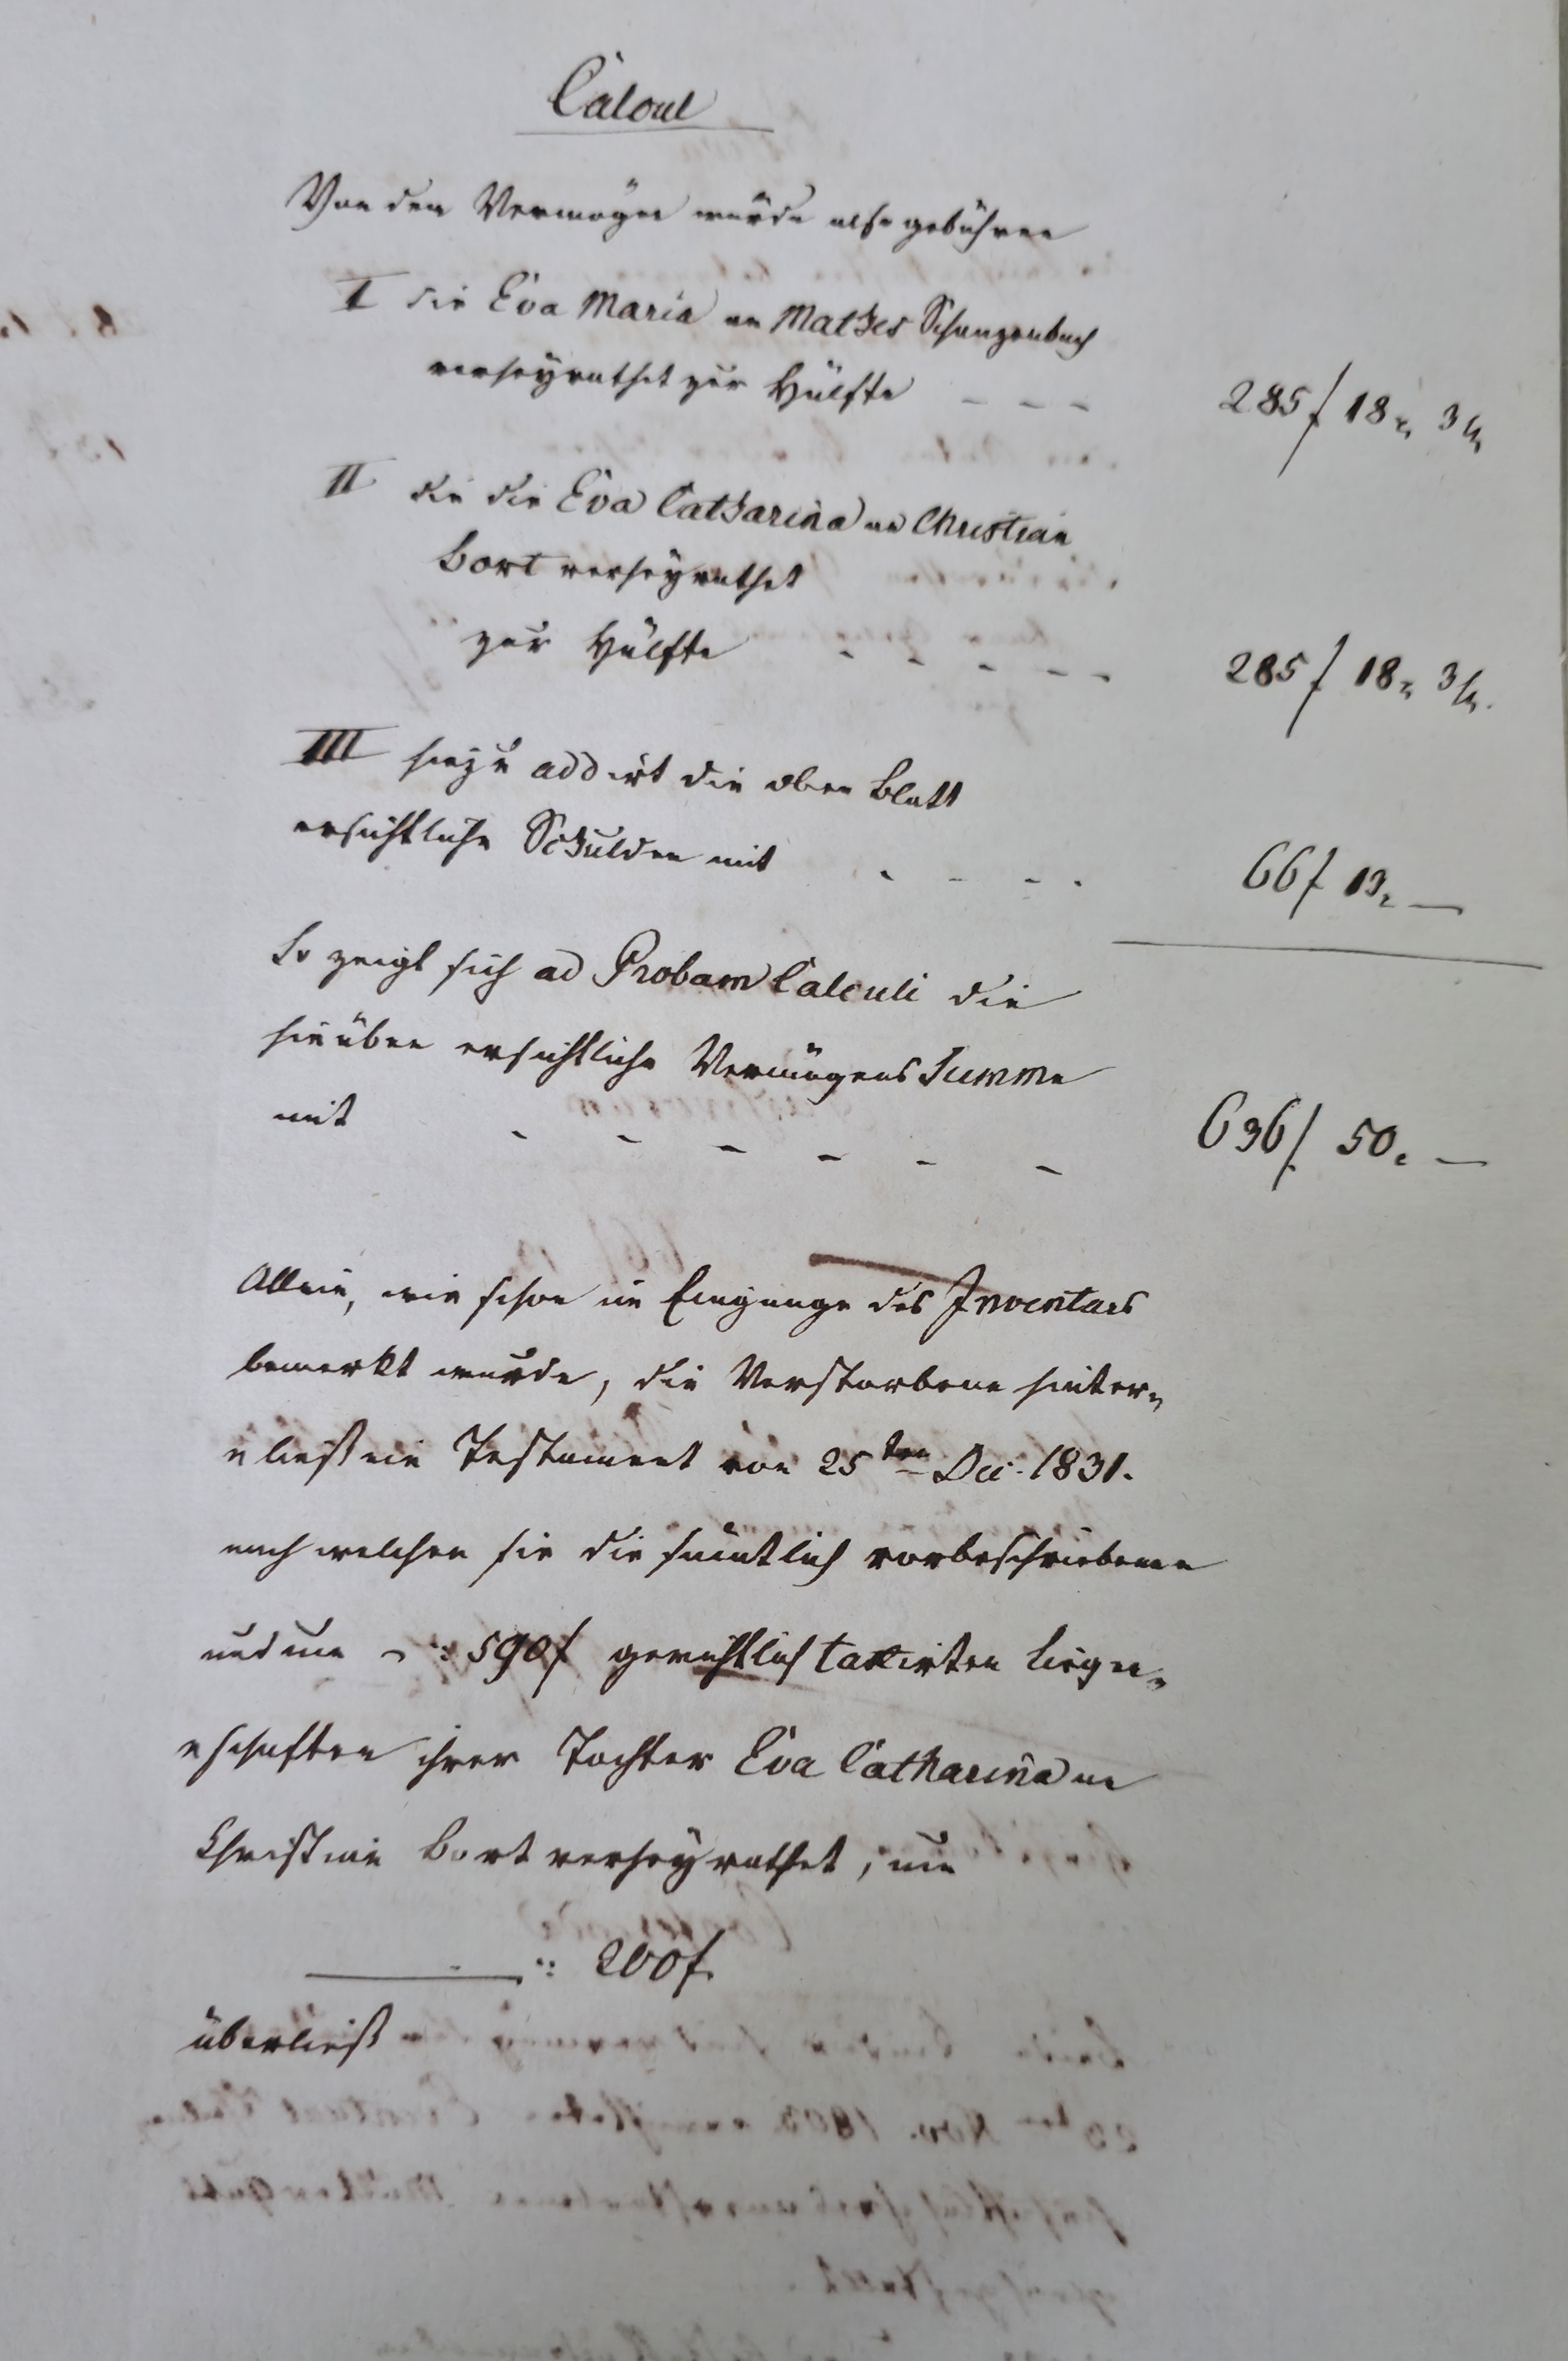 Calcul
Von dem Vermögen würde also gebühren
I die Eva Maria an Mathes Schanzenbach
verheyrathet zur Hälfte - - - 285f 18x 3h
II die die Eva Catharina an Christian
Bort verheyrathet
zur Hälfte - - - - - 285f 18x 3h.
III hiezu addirt die oben Blatt
ersichtliche Schulden mit - - - - 66f 13x —
So zeigt sich ad Probam Calculi die
hieüben ersichtliche Vermögens Summe
mit - - - - - - 636f 50x —
Allein, wie schon im Eingange des Inventars
bemerkt wurde, die Verstorbene hinter„
„ließ ein Testament von 25ten Dec: 1831.
nach welchem sie die sämtlich vorbeschriebene
und um -:: 590f gerichtlich taxirten Liegen„
„schaften ihrer Tochter Eva Catharina an
Christian Bort verheyrathet, um
———:: 200f.
überließ